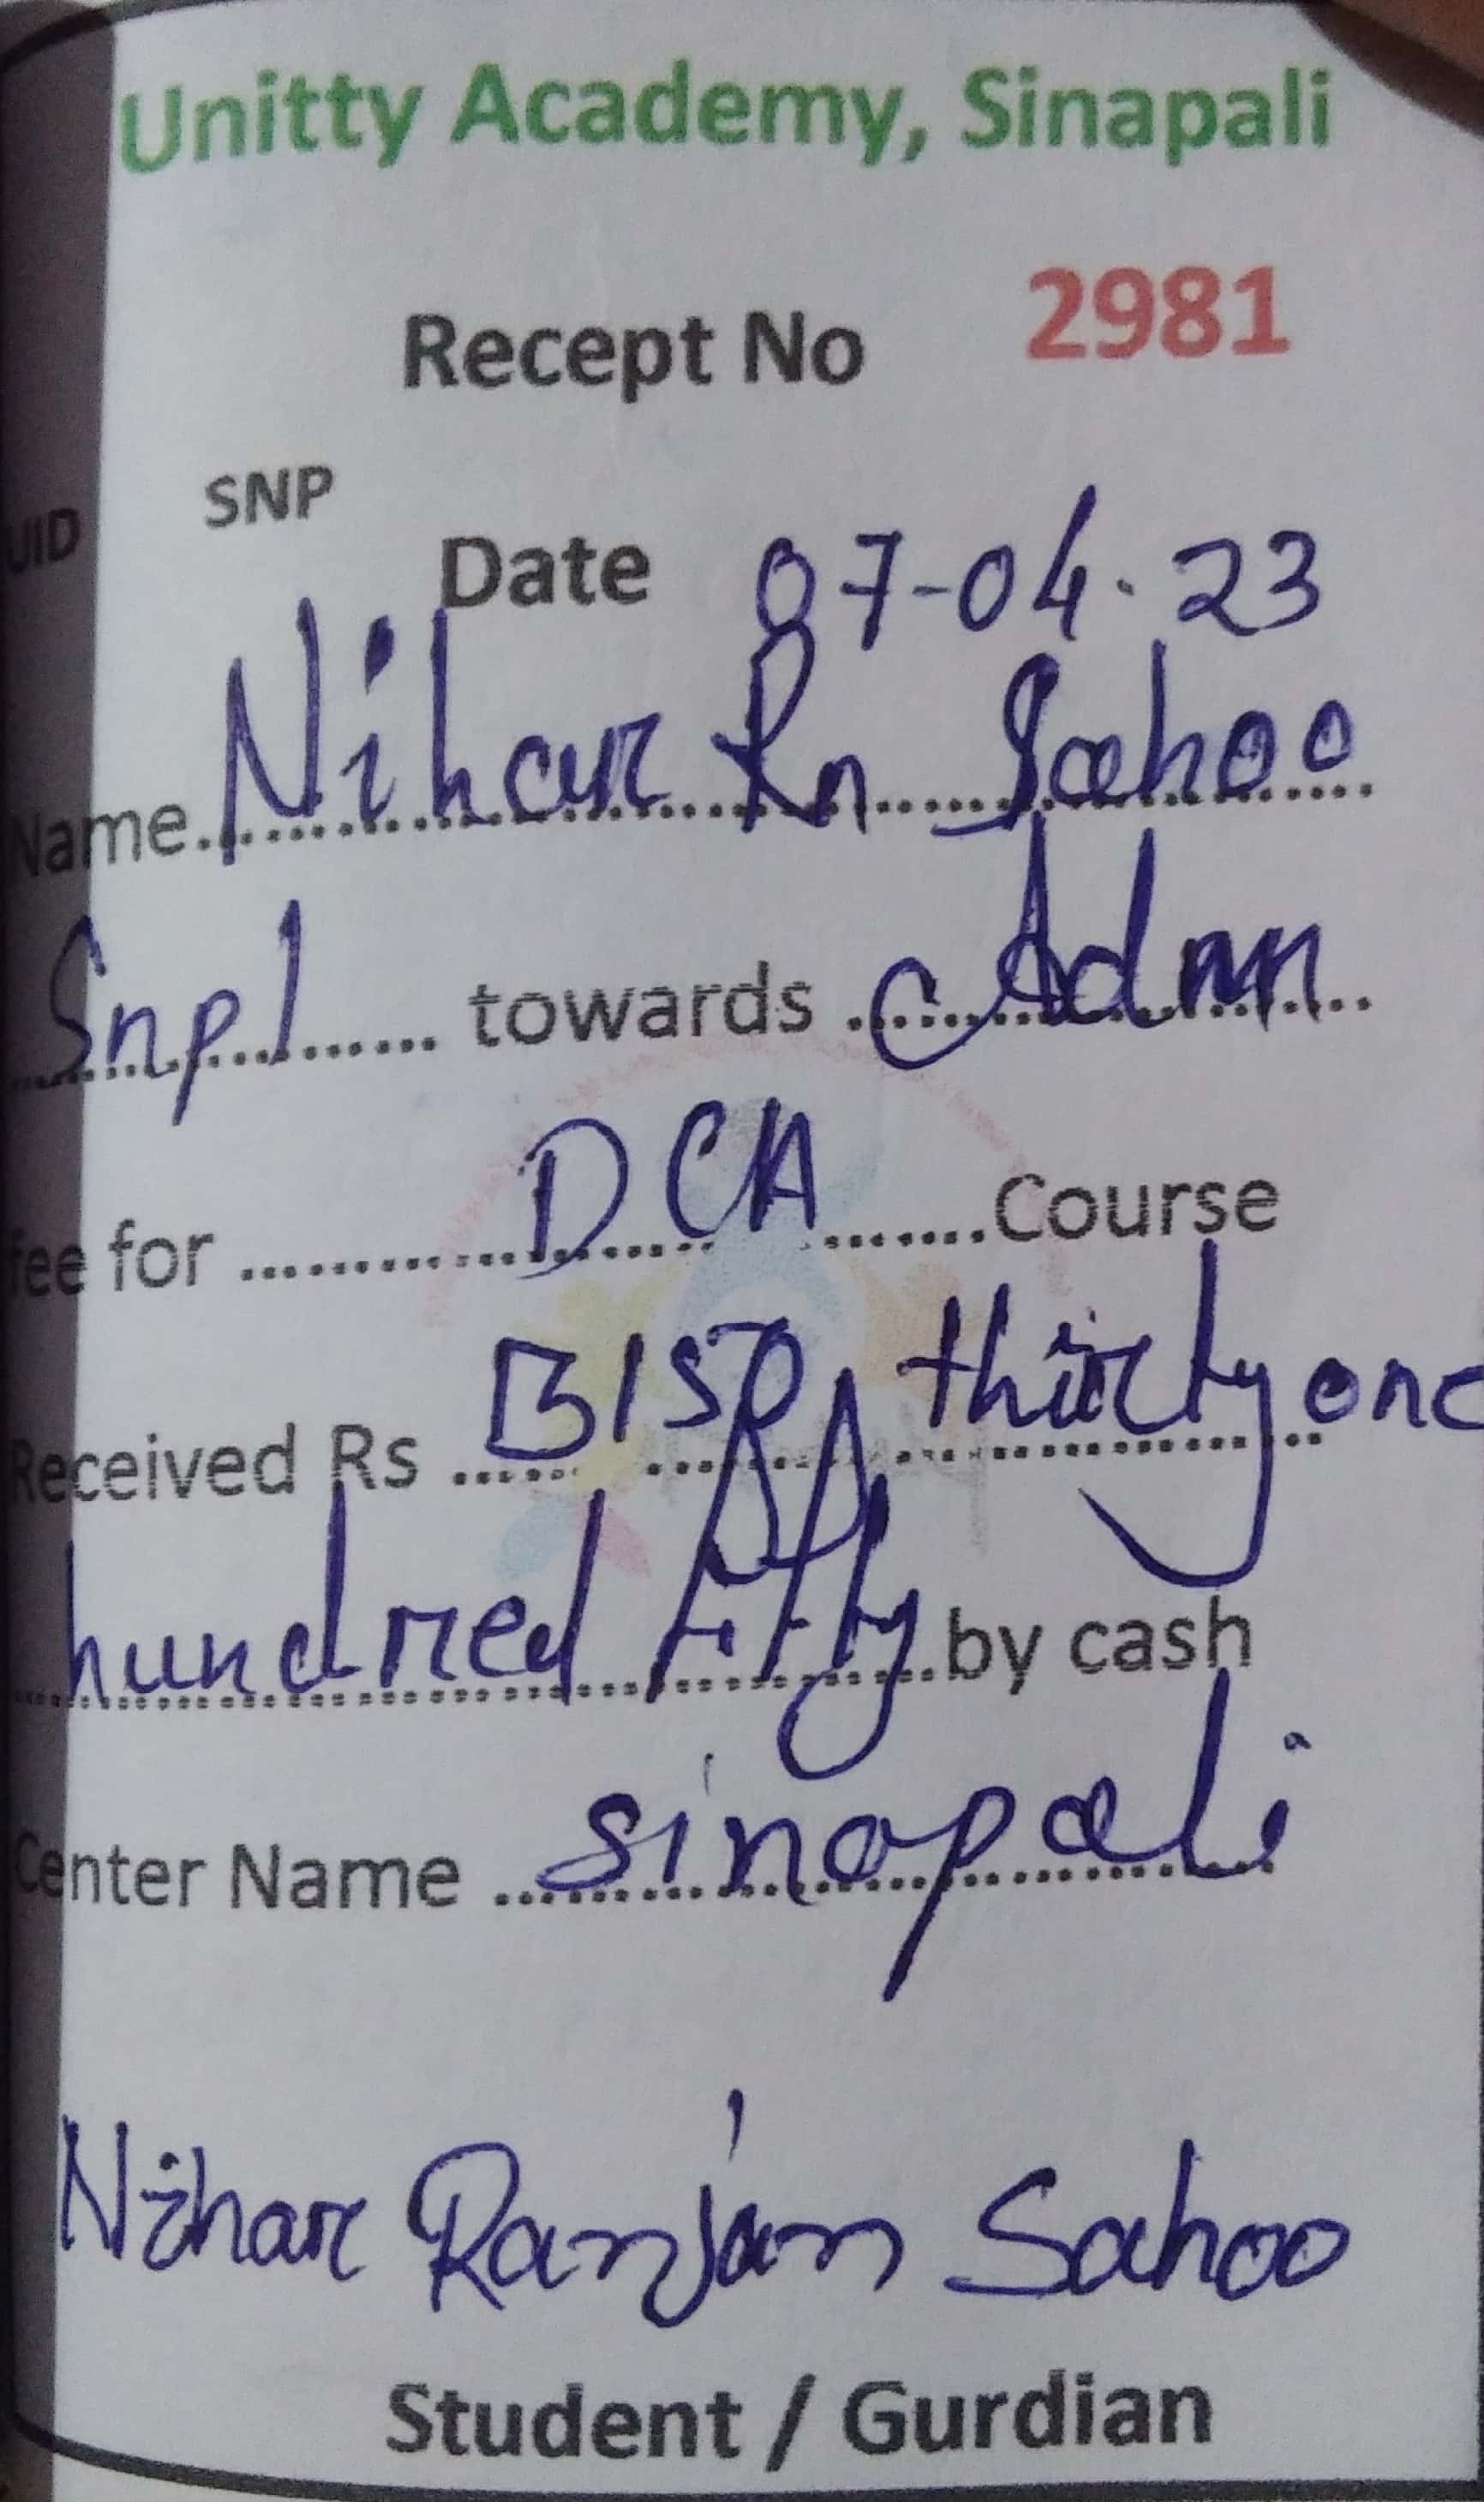 Unitty Academy, Sinapali
Recept No 2981
UID SNP
Date 07-04-23
Name........Nihar Rn Sahoo
Snpl........ towards ........Admn
fee for ........DCA........Course
Received Rs ......3150, thirty one
hundred fifty......by cash
Center Name ......sinapali
Nihar Ranjan Sahoo
Student / Gurdian